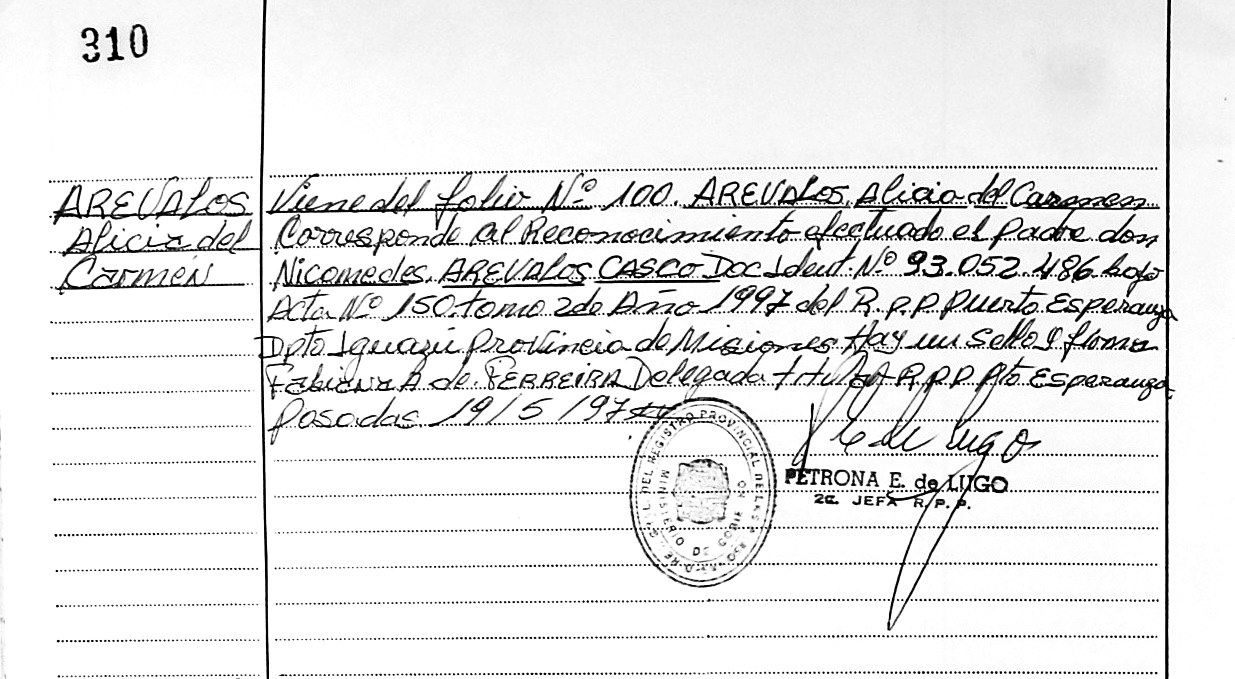 310
AREVALOS
Alicia del
Carmen
Viene del folio Nº 100. AREVALOS Alicia del Carmen
Corresponde al Reconocimiento efectuado el Padre don
Nicomedes. AREVALOS CASCO Doc Ident. Nº 93.052.486 bajo
Acta Nº 150. tomo 2 de Año 1997 del R.p.p Puerto Esperanza
Dpto Iguazú provincia de Misiones Hay un Sello y firma
Fabiana A de FERREIRA Delegada titular R.p.p. Pto Esperanza.
Posadas 19/5/97
REGISTRO PROVINCIAL DE LAS PERSONAS
MINISTERIO DE GOBIERNO
PETRONA E. de LUGO
2a. JEFA R. P. P.